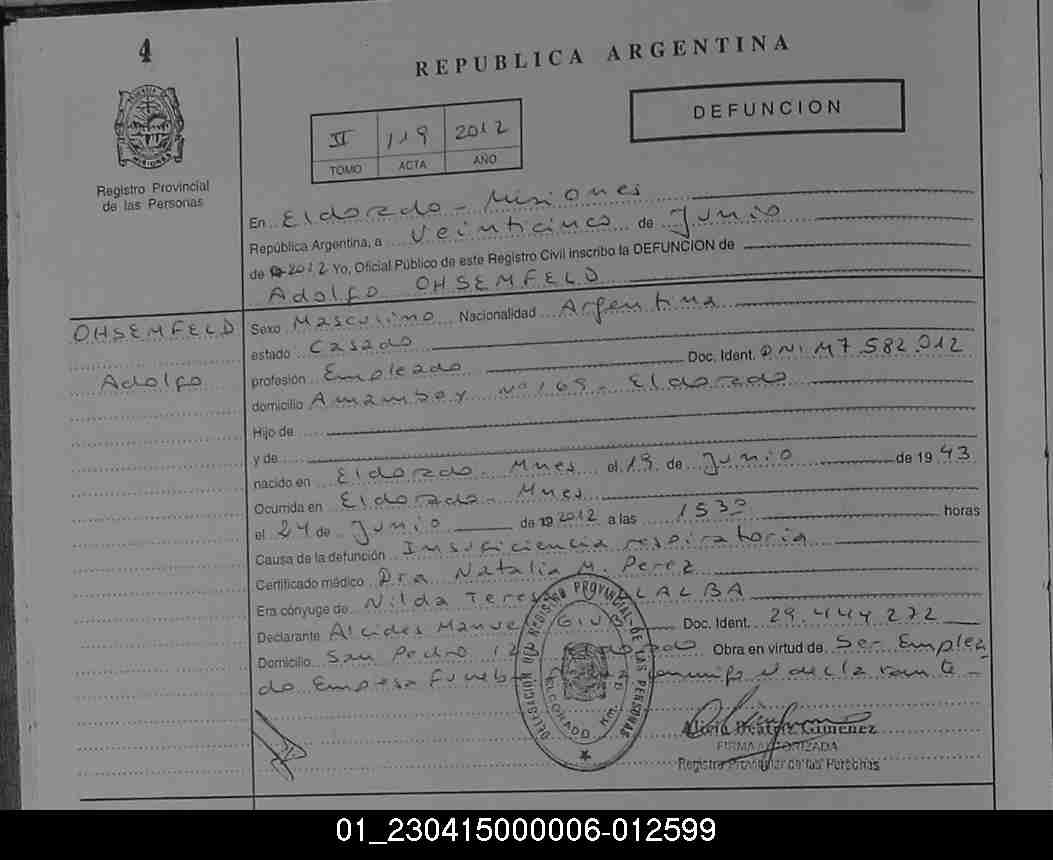 4
REPUBLICA ARGENTINA
DEFUNCION
II 119 2012
TOMO ACTA AÑO
Registro Provincial
de las Personas
En Eldorado - Misiones
República Argentina, a Veinticinco de Junio
de 2012 Yo, Oficial Público de este Registro Civil inscribo la DEFUNCION de
Adolfo OHSEMFELD
OHSEMFELD
Adolfo
Sexo Masculino Nacionalidad Argentina
estado Casado
profesión Empleado Doc. Ident. DNI M7.582.012
domicilio Amambay Nº 169 - Eldorado
Hijo de
y de
nacido en Eldorado - Mnes el 19 de Junio de 1943
Ocurrida en Eldorado - Mnes
el 24 de Junio de 2012 a las 1530 horas
Causa de la defunción Insuficiencia respiratoria
Certificado médico Dra Natalia M. Perez
Era cónyuge de Nilda VILLALBA
Declarante Alcides Manuel Doc. Ident. 29.444.272
Domicilio San Pedro Eldorado Obra en virtud de Ser Emplea
do Empresa declarante -
DELEGACION DEL REGISTRO PROVINCIAL DE LAS PERSONAS
ELDORADO Km.
Alicia Beatriz Gimenez
FIRMA AUTORIZADA
Registro Provincial de las Personas
01_230415000006-012599